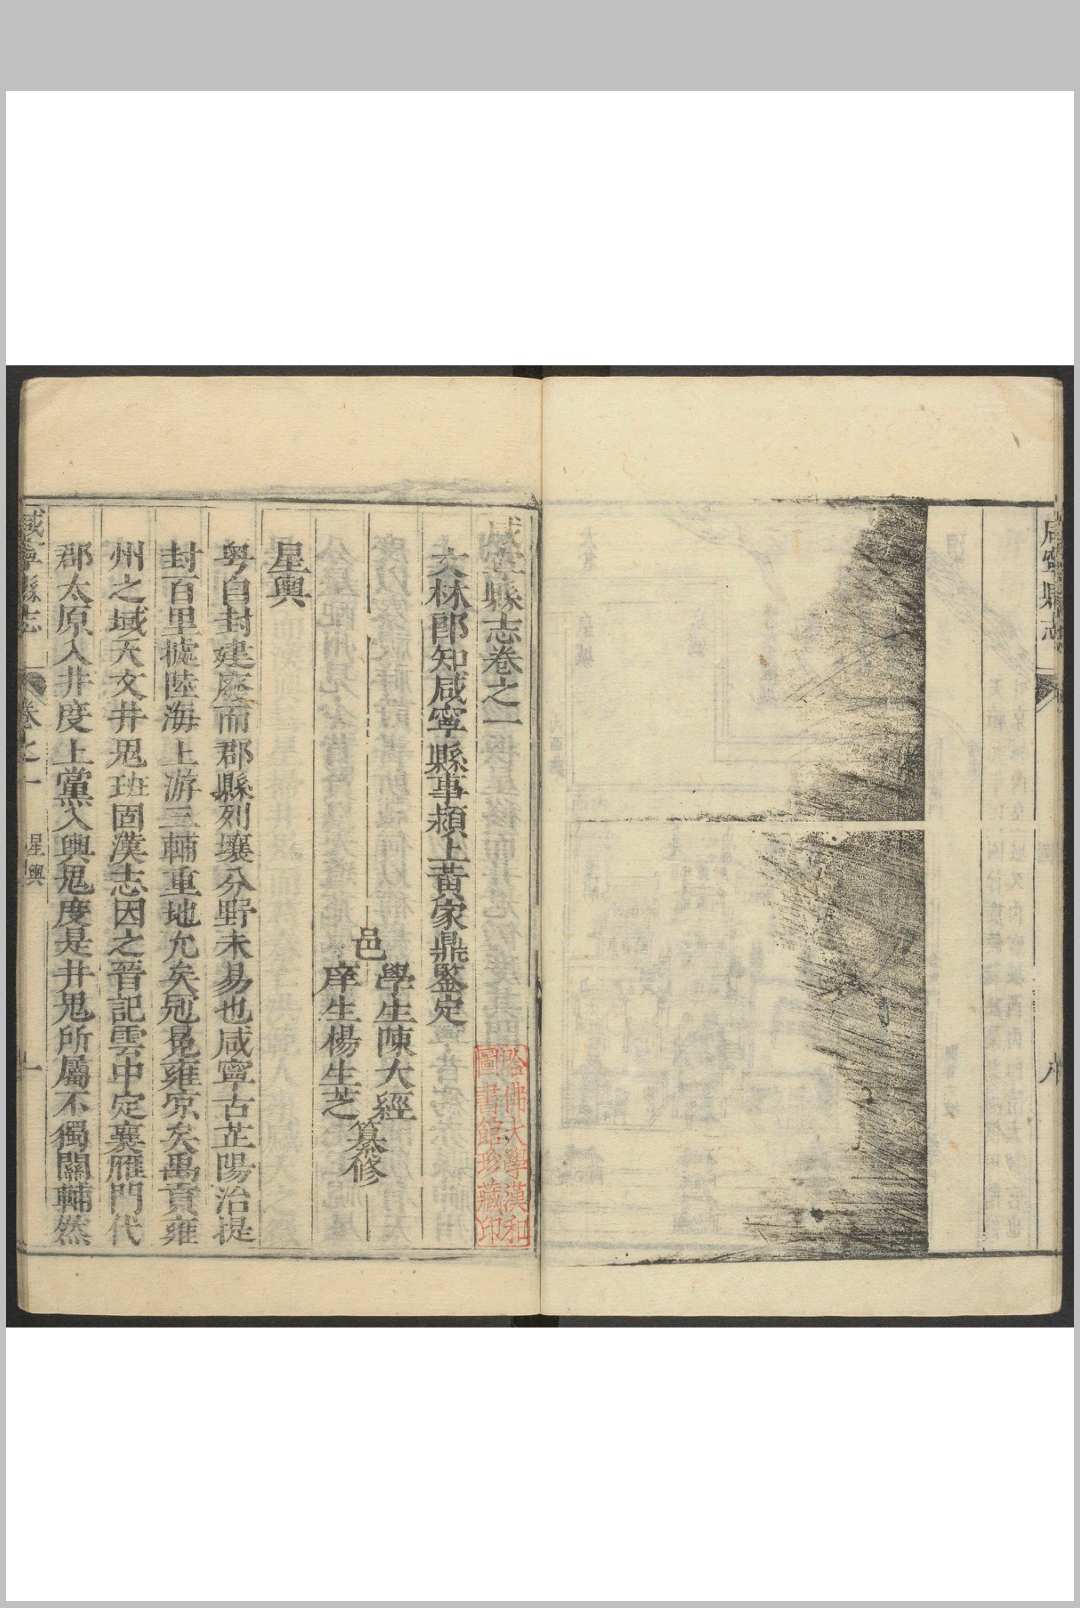 咸寧縣志
八
咸寧縣志卷之一
文林郎知咸寧縣事潁上黃家鼎鑒定
邑
學生陳大經
庠生楊生芝
纂修
星輿
粤自封建廢而郡縣列壤分野未易也咸寧古芷陽治提
封百里據陸海上游三輔重地允矣冠冕雍京矣禹貢雍
州之域天文井鬼班固漢志因之晉記雲中定襄雁門代
郡太原入井度上黨入輿鬼度是井鬼所屬不獨關輔然
咸寧縣志
卷之一
星輿
一
哈佛大學漢和
圖書館珍藏印